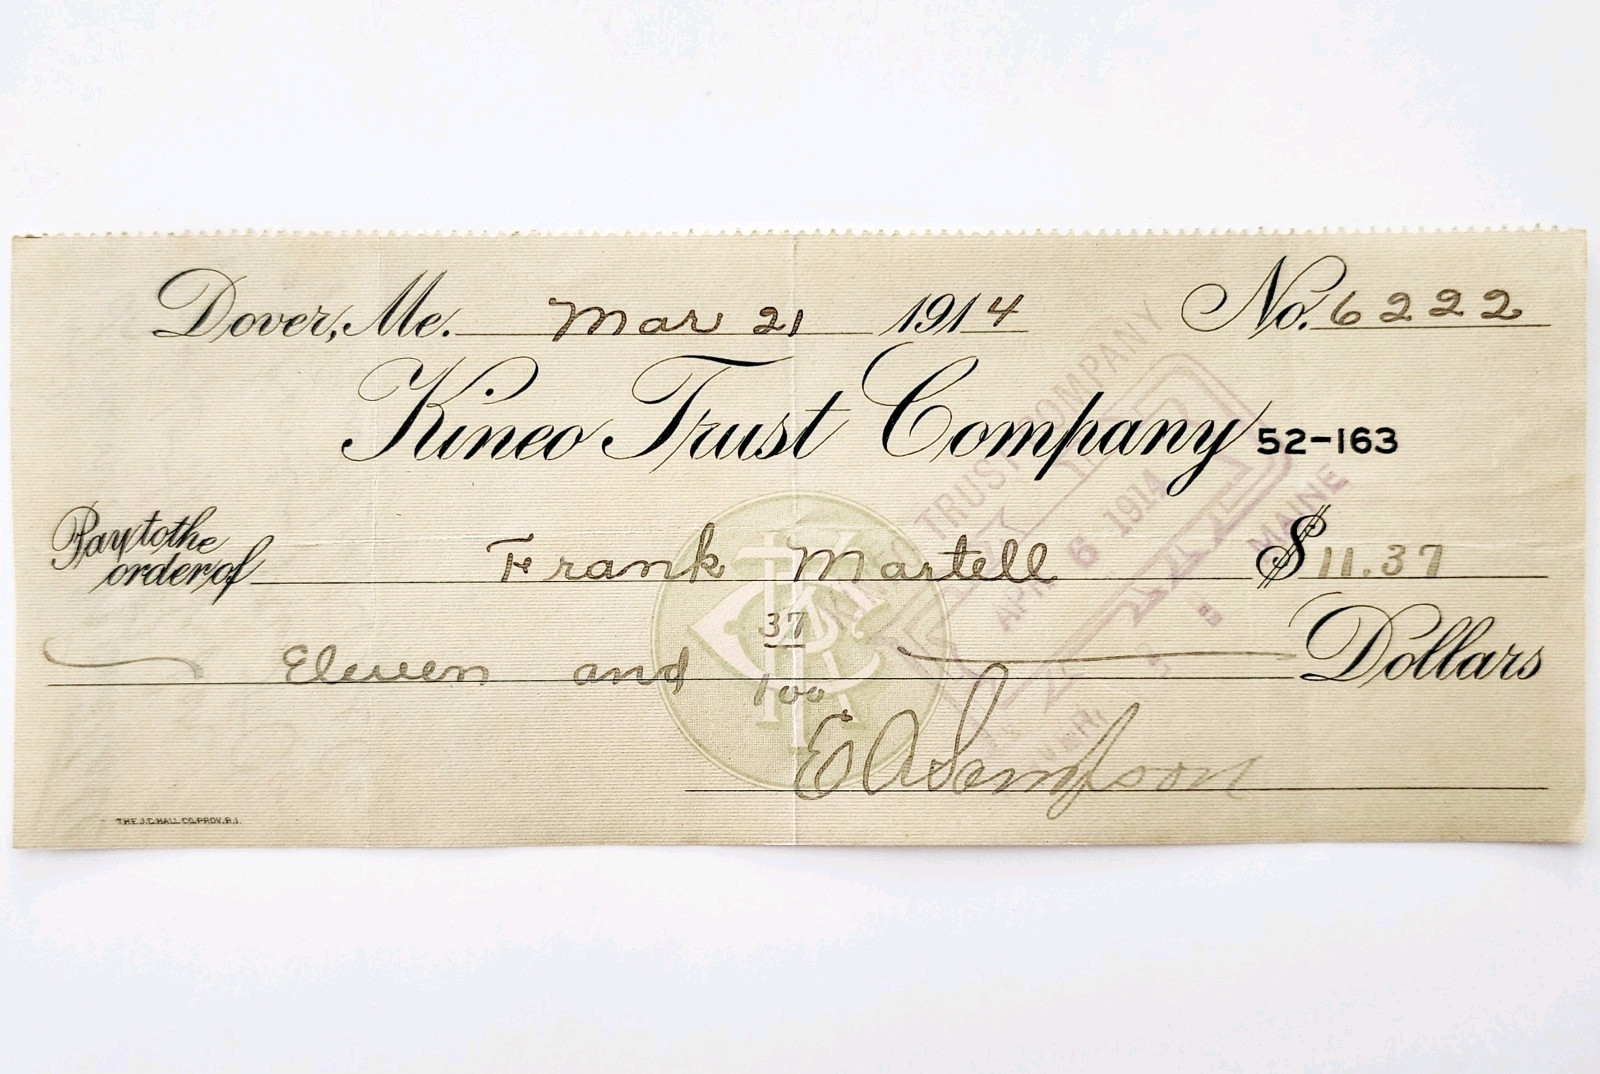 Dover, Me. Mar 21 1914 No. 6222
Kineo Trust Company 52-163
Pay to the order of Frank Martell $11.37
Eleven and 37/100 Dollars
E A Sampson
KINEO TRUST COMPANY
PAID
APR 6 1914
MAINE
THE J.C. HALL CO. PROV. R.I.